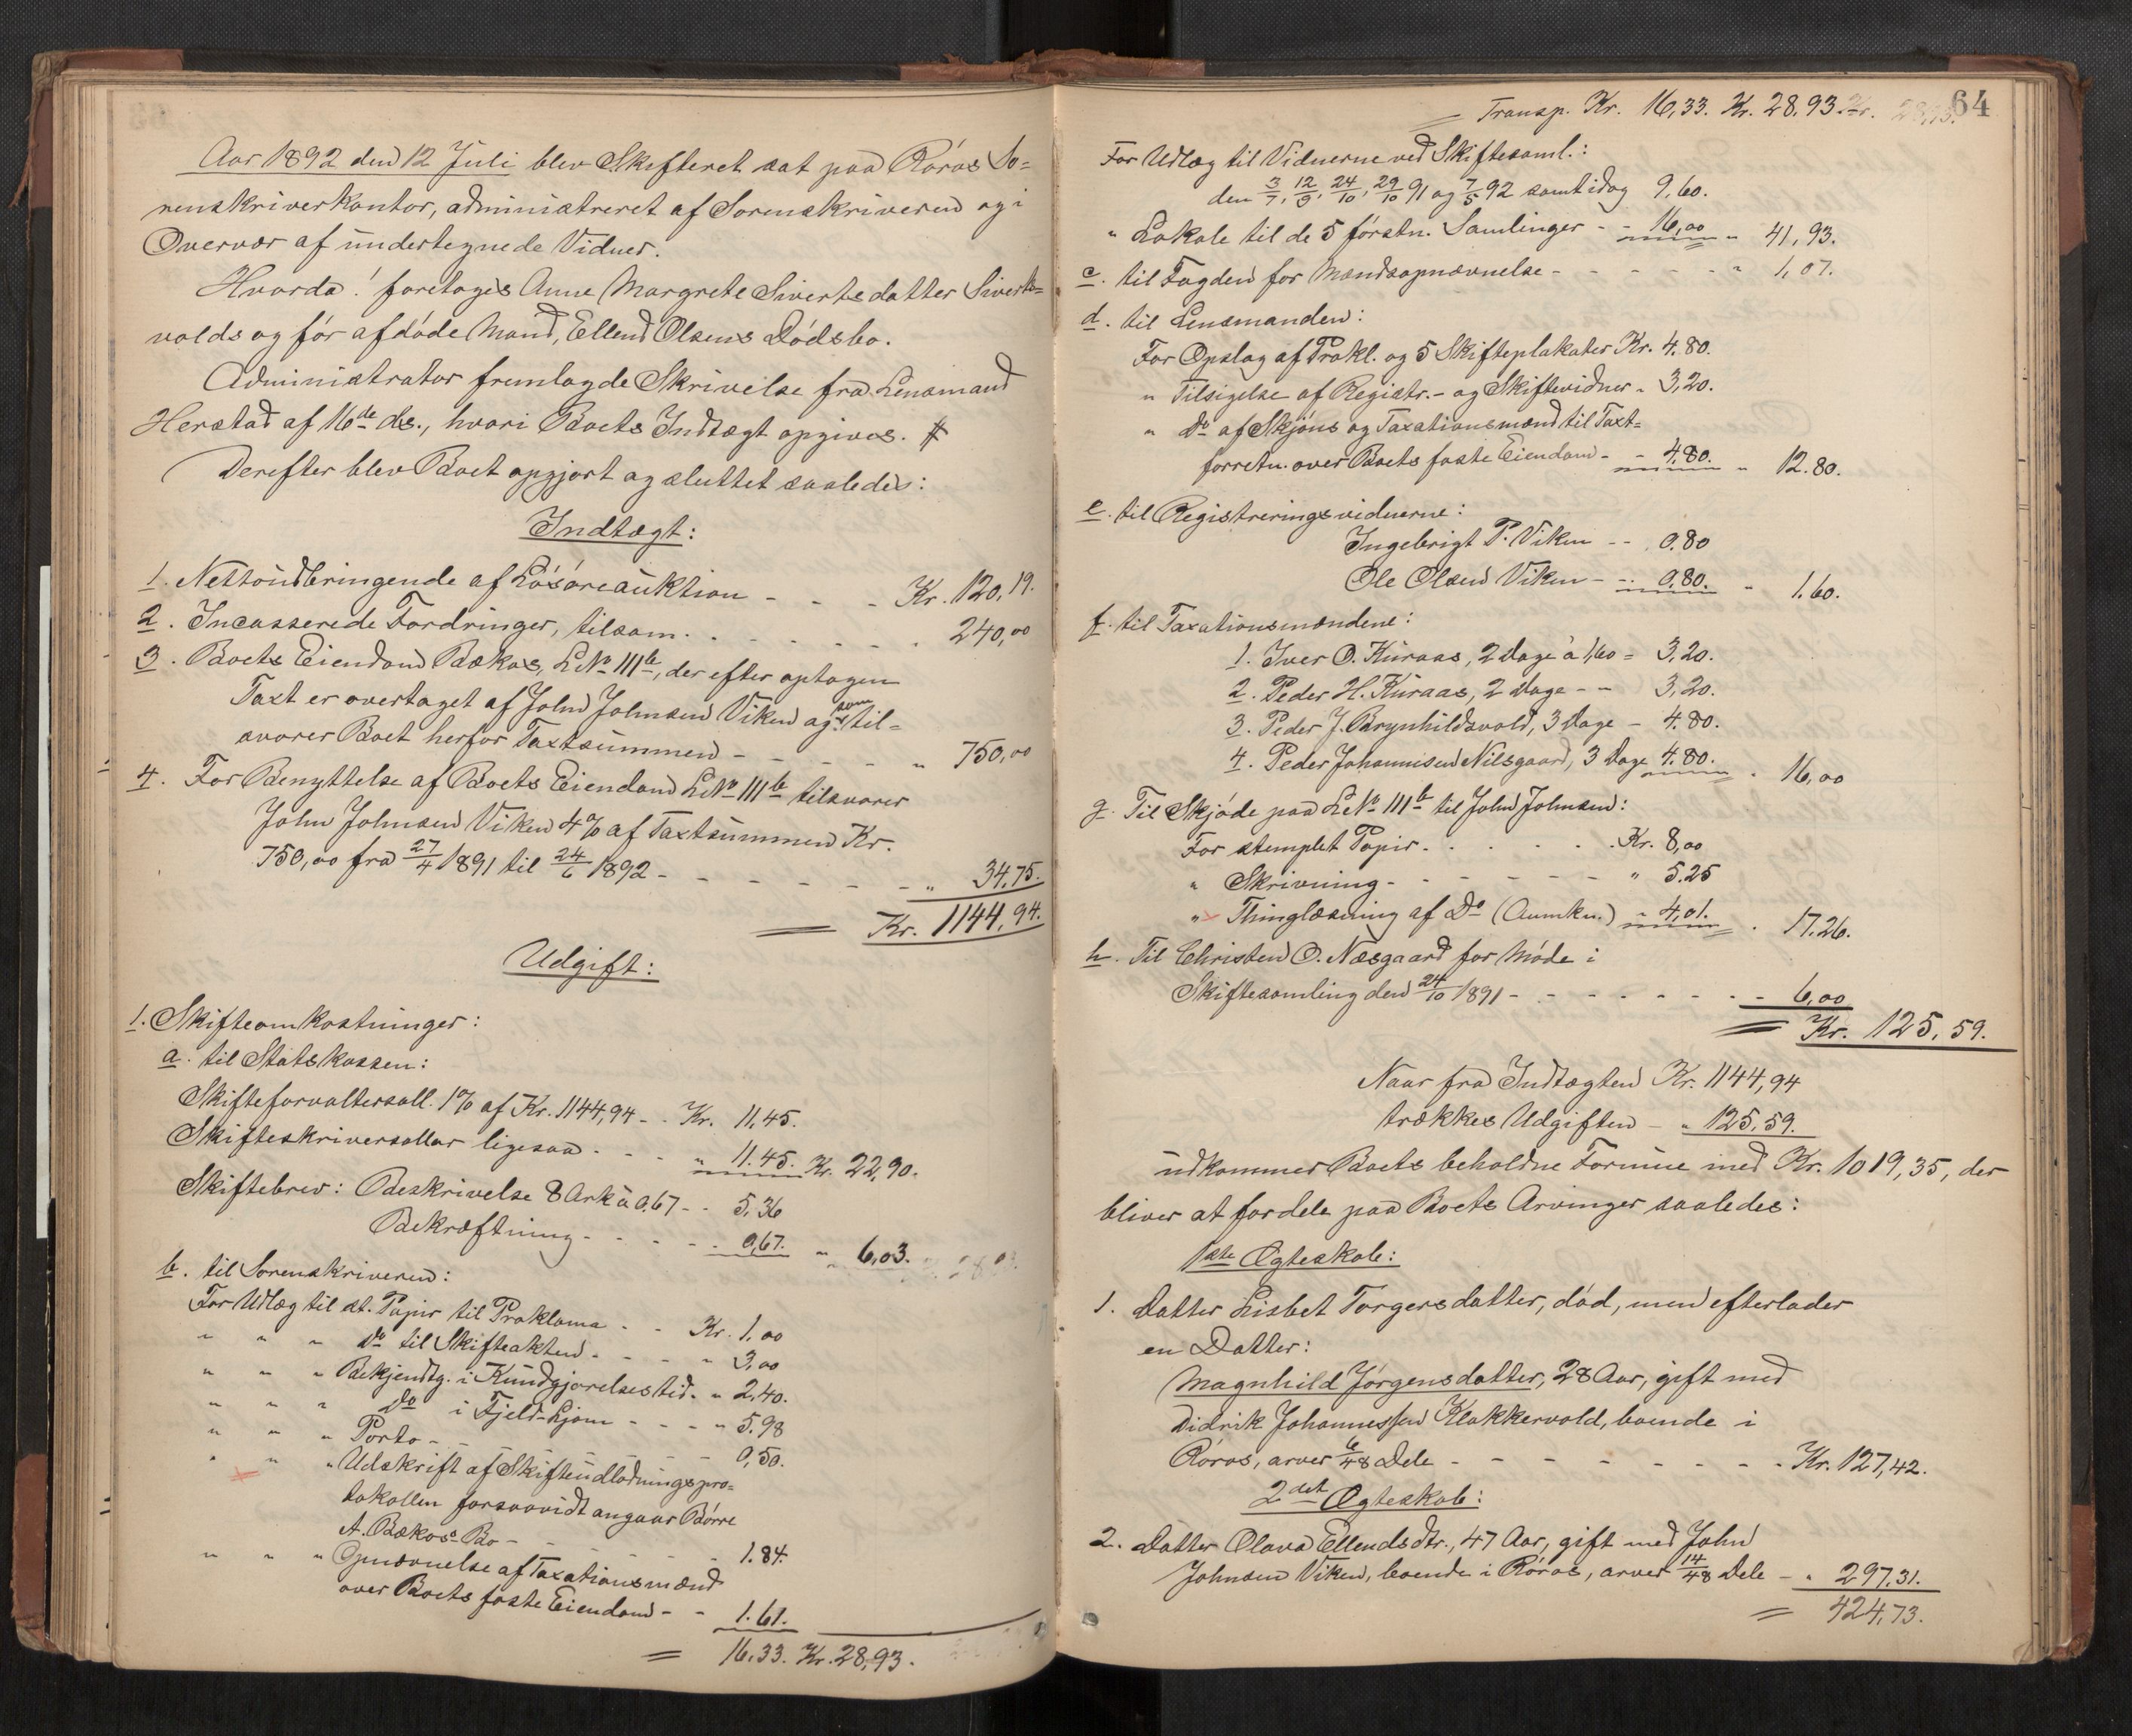 Aar 1892 den 12 Juli blev Skifteret sat paa Røros So=
renskriverkontor, administreret af Sorenskriveren og i
Overvær af undertegnede Vidner.
Hvorda! foretoges Anne Margrete Sivertsdatter Siverts=
volds og før afdøde Mand, Ellend Olsens Dødsbo.
Administrator fremlagde Skrivelse fra Lensmand
Herstad af 16de ds., hvori Boets Indtægt opgives. #
Derefter blev Boet opgjort og sluttet saaledes:
Indtægt:
1. Nettoudbringende af Løsøreauktion - - - Kr. 120,19.
2. Incasserede Fordringer, tilsam. . . - - - - 240,00
3. Boets Eiendom Bækos, LNo 111b, der efter optagen
Taxt er overtaget af John Johnsen Viken og som til=
svarer Boet herfor Taxtsummen - - - - - " 750,00
4. For Benyttelse af Boets Eiendom LNo 111b tilsvarer
John Johnsen Viken 4% af Taxtsummen Kr.
750,00 fra 27/4 1891 til 24/6 1892 - - - - - - - " 34,75.
= Kr. 1144,94.
Udgift:
1. Skifteomkostninger:
a. til Statskassen:
Skifteforvaltersall. 1% af Kr. 1144,94 - . Kr. 11,45.
Skifteskriversallar ligesaa . - - - " 11.45. Kr. 22,90.
Skiftebrev: Beskrivelse 8 Ark à 0,67 - . 5,36
Bekræftning - - - - - 0,67. - " 6,03.
b. til Sorenskriveren:
For Udlæg til st. Papir til Proklama . - Kr. 1.00
" " " Do til Skifteakten . - - - " 3,00
" " " Bekjendtg. i Kundgjørelsestid. " 2,40.
" " " Do i Fjeld-Ljom - - - " 5.98
" " " Porto - - - - - - 0,50.
" " " Udskrift af Skifteudlodningspro=
tokollen forsaavidt angaar Børre
A. Bækos's Bo - - - - - - 1.84.
" " " Opnævnelse af Taxationsmænd
over Boets faste Eiendom - - 1.61.
= 16,33. Kr. 28,93.
64
Transp. Kr. 16,33. Kr. 28,93.
For Udlæg til Vidnerne ved Skiftesaml.:
den 3/7, 12/9, 24/10, 29/10 91 og 7/5 92 samt idag 9,60.
" Lokale til de 5 førstn. Samlinger - - 16,00 " 41,93.
c. til Fogden for Mandsopnævnelse - - - - - - " 1,07.
d. til Lensmanden:
For Opslag af Prokl. og 5 Skifteplakater Kr. 4.80.
" Tilsigelse af Registr.- og Skiftevidner " 3,20.
" Do af Skjøns og Taxationsmænd til Taxt=
forretn. over Boets faste Eiendom - - 4.80. " 12.80.
e. til Registreringsvidnerne:
Ingebrigt P. Viken - - 0.80
Ole Olsen Viken - -. 0.80. " 1.60.
f. til Taxationsmændene:
1. Iver O. Kuraas, 2 Dage à 1,60 = 3,20.
2. Peder H. Kuraas, 2 Dage - - 3,20.
3. Peder J. Brynhildsvold, 3 Dage - 4.80.
4. Peder Johannisen Nilsgaard, 3 Dage 4.80. " 16,00
g. Til Skjøde paa LNo 111b til John Johnsen:
For stemplet Papir. . . . . . Kr. 8,00
" Skrivning - - - - - - - " 5.25
" Thinglæsning af Do (Anmkn.) " 4,01. . 17.26.
h. Til Christen O. Næsgaard for Møde i
Skiftesamling den 24/10 1891 - - - - - - - - 6,00
= Kr. 125,59.
Naar fra Indtægten Kr. 1144,94
trækkes Udgiften - " 125,59.
udkommer Boets beholdne Formue med Kr. 1019,35, der
bliver at fordele paa Boets Arvinger saaledes:
1ste Ægteskab:
1. Datter Lisbet Torgersdatter, død, men efterlader
en Datter:
Magnhild Jørgensdatter, 28 Aar, gift med
Didrik Johannessen Klokkervold, boende i
Røros, arver 6/48 Dele - - - - - - - - Kr. 127,42.
2det Ægteskab:
2. Datter Olava Ellendsdtr., 47 Aar, gift med John
Johnsen Viken, boende i Røros, arver 14/48 Dele - " 297.31.
= 424,73.